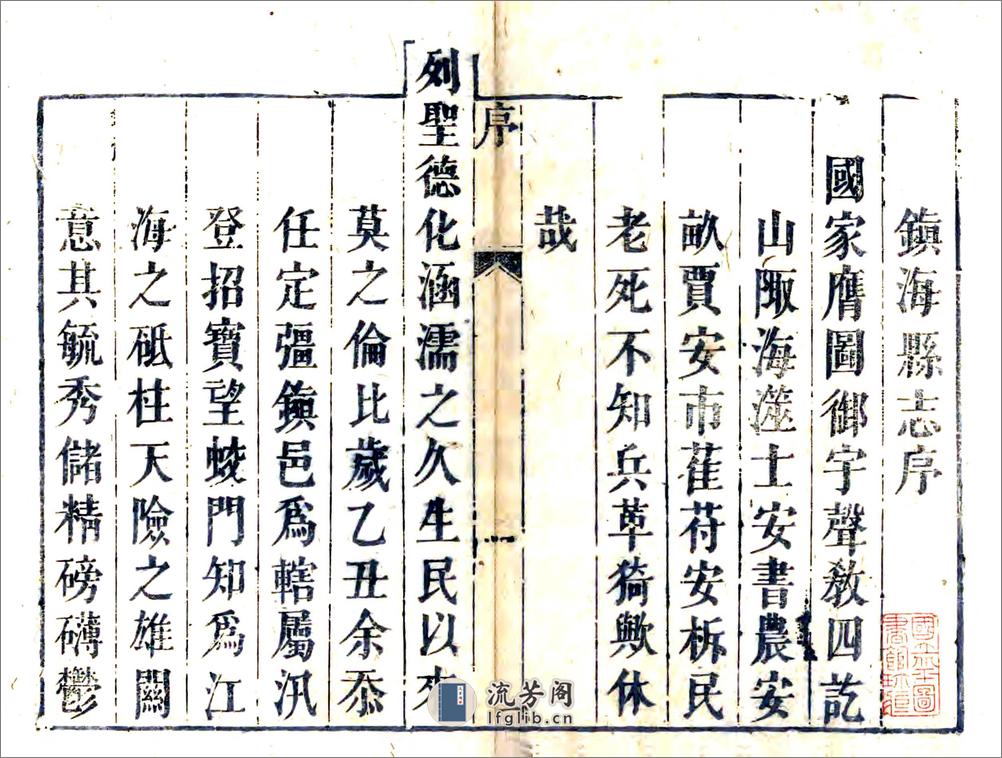 鎮海縣志序
國家膺圖御宇聲敎四訖
山陬海澨士安書農安
畝賈安市萑苻安柝民
老死不知兵革猗歟休
哉
序
一
列聖德化涵濡之久生民以來
莫之倫比歲乙丑余忝
任定彊鎮邑爲轄屬汛
登招寶望蛟門知爲江
海之砥柱天險之雄關
意其毓秀儲精磅礴鬱
流芳阁
lfglib.cn